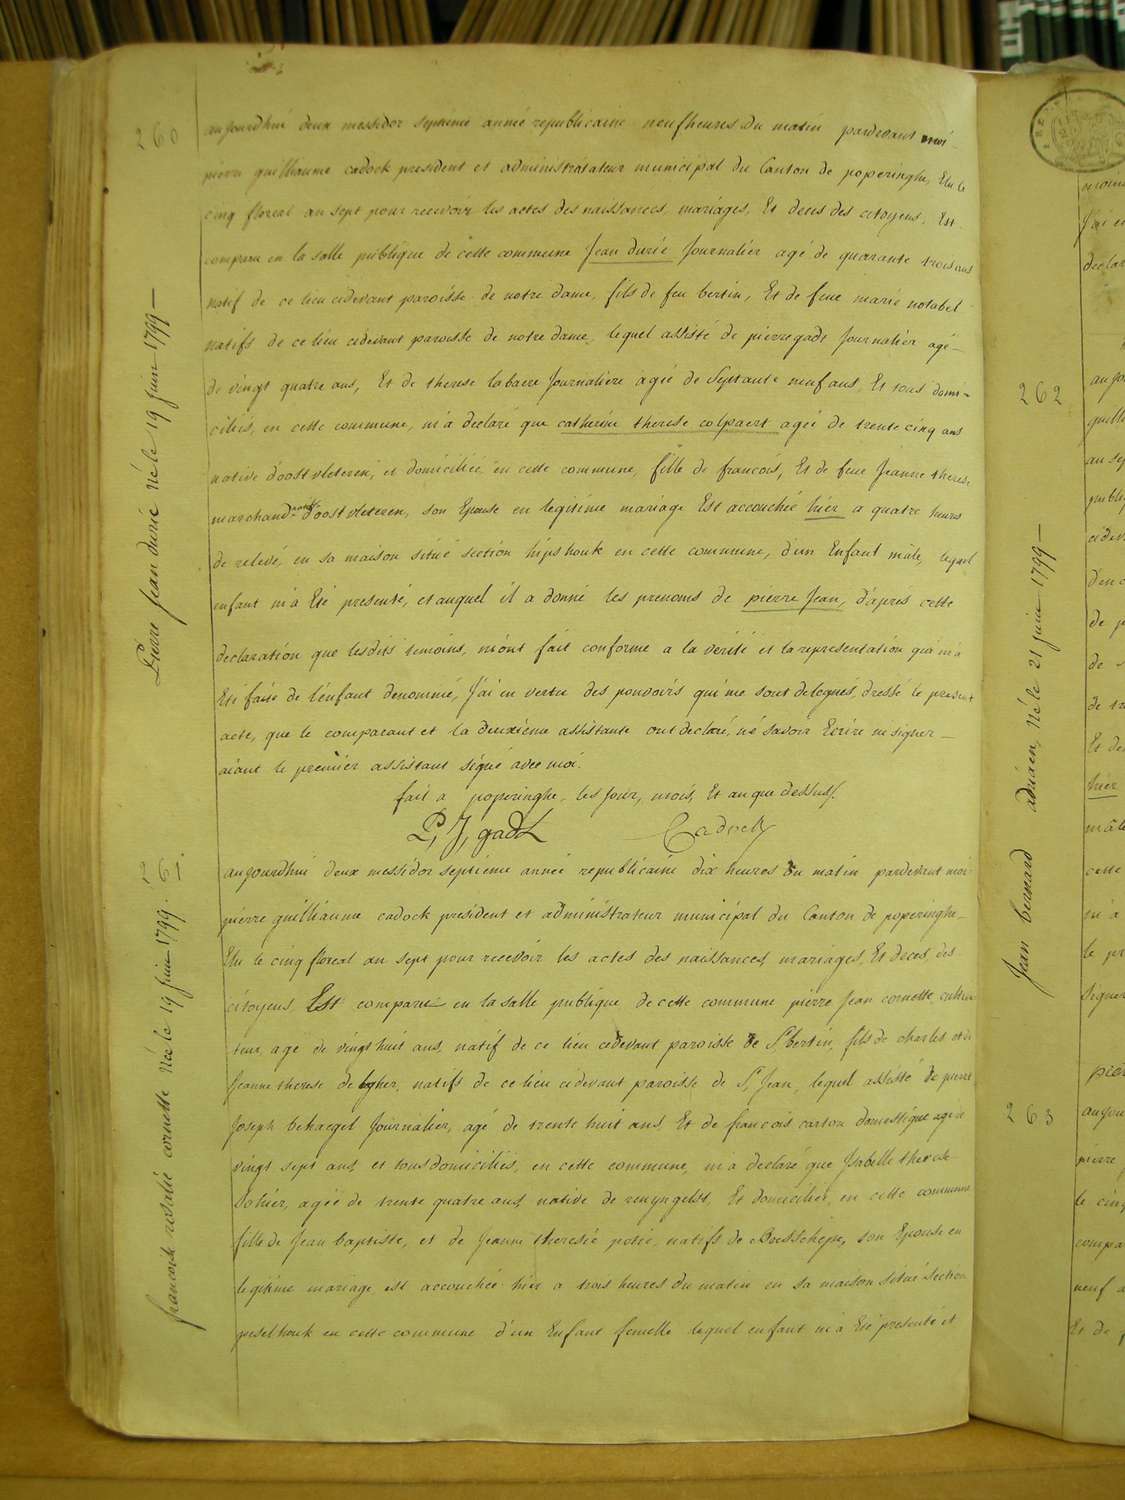 260
aujourdhui deux messidor septieme année republicaine neuf heures du matin pardevant moi
pierre guilliaume cadock president et administrateur municipal du Canton de poperinghe, Elu le
cinq floreal an sept pour recevoir les actes des naissances, mariages, Et deces des citoyens, Est
comparu en la salle publique de cette commune Jean durié Journalier agé de quarante trois ans
natif de ce lieu cidevant paroisse de notre dame, fils de feu bertin, Et de feue marie notabel
natifs de ce lieu cidevant paroisse de notre dame, lequel assisté de pierre gade Journalier agé
de vingt quatre ans, Et de therese labaere Journaliere agée de Septante neuf ans, Et tous domi-
ciliés, en cette commune, m'a declaré que catherine therese colpaert agée de trente cinq ans
native d'oostvleteren, et domiciliée en cette commune, fille de francois, Et de feue Jeanne therese
marchand natifs d'oostvleteren, son Epouse en legitime mariage Est accouchée hier a quatre heures
de relevé, en sa maison situé section hipshouk en cette commune, d'un Enfant mâle, lequel
enfant m'à Eté presenté, et auquel il a donné les prenoms de pierre Jean, d'apres cette
declaration que lesdits temoins, m'ont fait conforme a la vérité et la representation qui m'a
Eté faite de l'enfant denommé, J'ai en vertu des pouvoirs qui me sont delegués, dressé le present
acte, que le comparant et la deuxième assistante ont declaré, né savoir Ecrire ni signer —
aiant le premier assistant signé avec moi.
fait a poperinghe, les Jour, mois, Et an que dessus.
P, J, gade Cadock
Pierre Jean durié Né le 19 juin 1799 —
261
aujourdhui deux messidor septieme année republicaine dix heures du matin pardevant moi
pierre guilliaume cadock president et administrateur municipal du Canton de poperinghe
Elu le cinq floreal an sept pour recevoir les actes des naissances, mariages, Et deces, des
citoyens, Est comparu en la salle publique de cette commune pierre Jean cornette cultiva
teur, agé de vingt huit ans, natif de ce lieu cidevant paroisse de St bertin, fils de charles et de
Jeanne therese natifs de ce lieu cidevant paroisse de St Jean, lequel assisté de pierre
Joseph behaegel Journalier, agé de trente huit ans, Et de francois carton domestique agé de
vingt sept ans, et tous domiciliés, en cette commune, m'a declaré que Isabelle therese
agée de trente quatre ans, native de renyngelst, Et domiciliée, en cette commune
fille de Jean baptiste, et de Jeanne theresie natifs de Boesschepe, son Epouse en
legitime mariage est accouchée hier a trois heures du matin en sa maison situé section
peselhouk en cette commune d'un Enfant femelle lequel enfant m'à Eté presenté et
francoise rosalie cornette Née le 19 juin 1799.
262
Jean bernard adrien, Né le 21 juin 1799 —
J'ai
hier
cette
263
pierre
le cinq
neuf
Et de